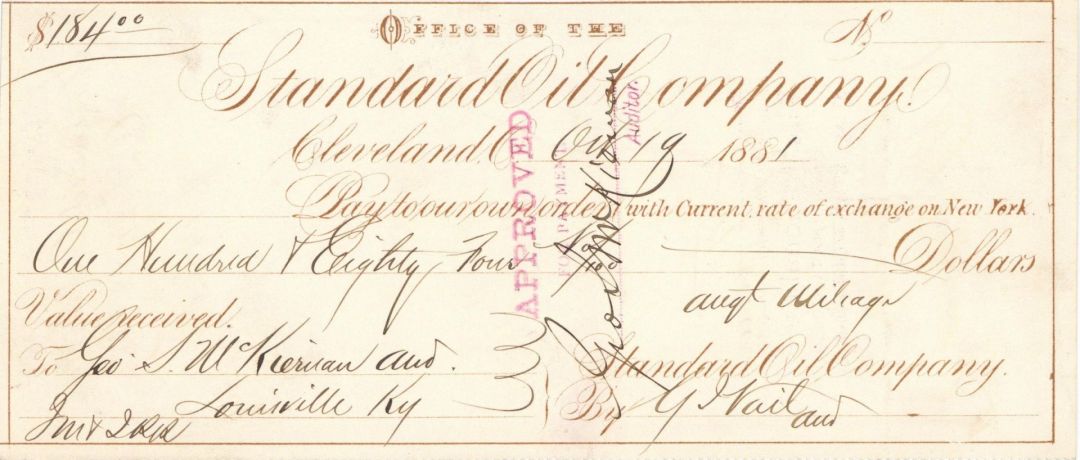 $184.00 OFFICE OF THE No
Standard Oil Company.
Cleveland, O. Oct 19 1881
Pay to our own order, with Current rate of exchange on New York.
One Hundred & Eighty Four no/100 Dollars
Value received. augt Mileage
To Geo. S. McKiernan aud. Standard Oil Company.
Louisville Ky By aud
APPROVED
FOR PAYMENT
Geo S McKiernan
Auditor.